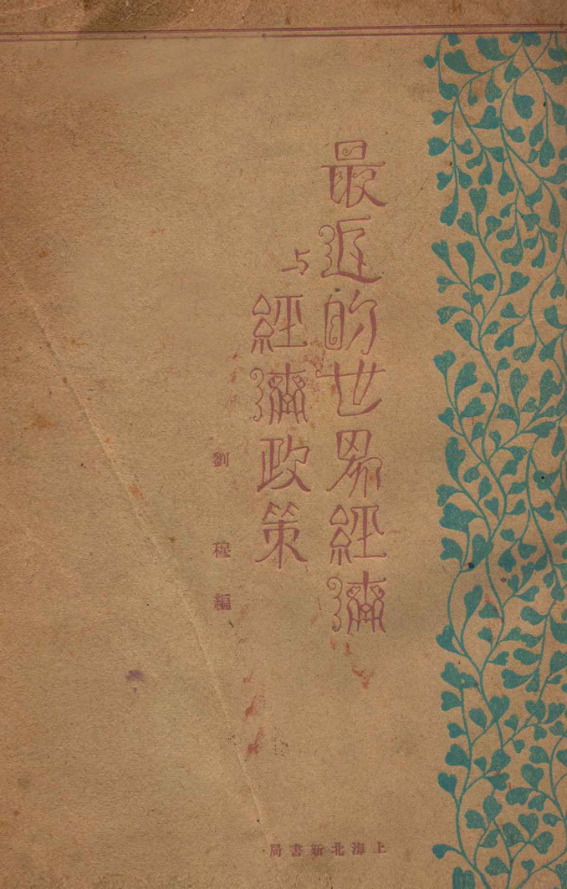 最近的世界經濟
与經濟政策
劉穆編
上海北新書局